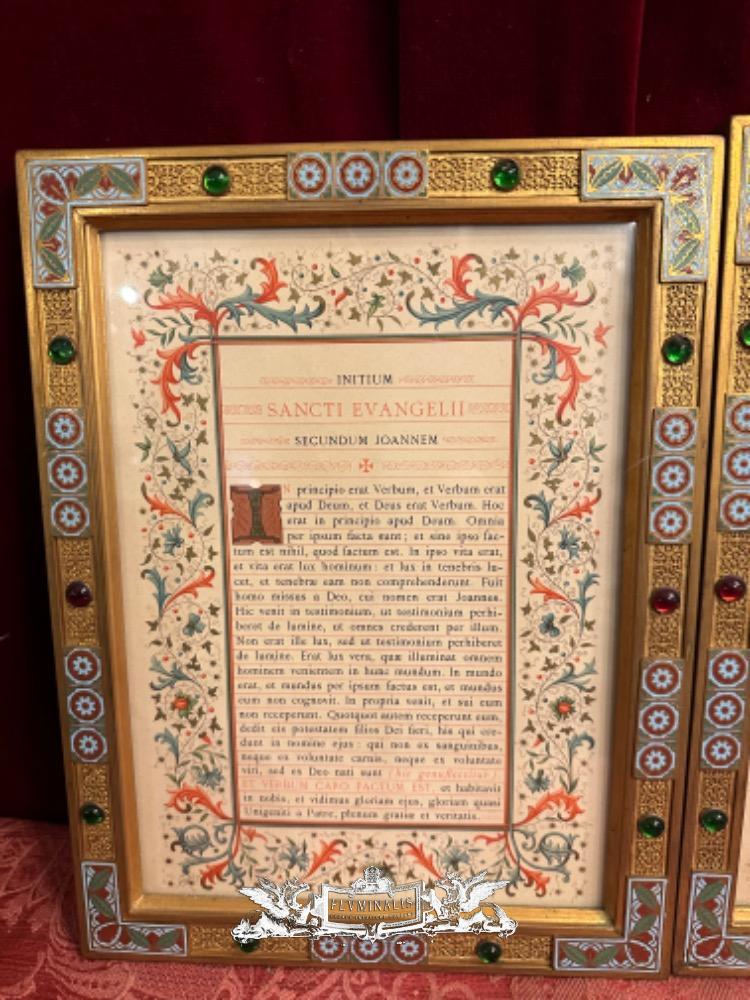 INITIUM
SANCTI EVANGELII
SECUNDUM JOANNEM
IN principio erat Verbum, et Verbum erat
apud Deum, et Deus erat Verbum. Hoc
erat in principio apud Deum. Omnia
per ipsum facta sunt; et sine ipso fac-
tum est nihil, quod factum est. In ipso vita erat,
et vita erat lux hominum: et lux in tenebris lu-
cet, et tenebræ eam non comprehenderunt. Fuit
homo missus a Deo, cui nomen erat Joannes.
Hic venit in testimonium, ut testimonium perhi-
beret de lumine, ut omnes crederent per illum.
Non erat ille lux, sed ut testimonium perhiberet
de lumine. Erat lux vera, quæ illuminat omnem
hominem venientem in hunc mundum. In mundo
erat, et mundus per ipsum factus est, et mundus
eum non cognovit. In propria venit, et sui eum
non receperunt. Quotquot autem receperunt eum,
dedit eis potestatem filios Dei fieri, his qui cre-
dunt in nomine ejus: qui non ex sanguinibus,
neque ex voluntate carnis, neque ex voluntate
viri, sed ex Deo nati sunt (hic genuflectitur)
ET VERBUM CARO FACTUM EST, et habitavit
in nobis, et vidimus gloriam ejus, gloriam quasi
Unigeniti a Patre, plenum gratiæ et veritatis.
FLVMINALIS